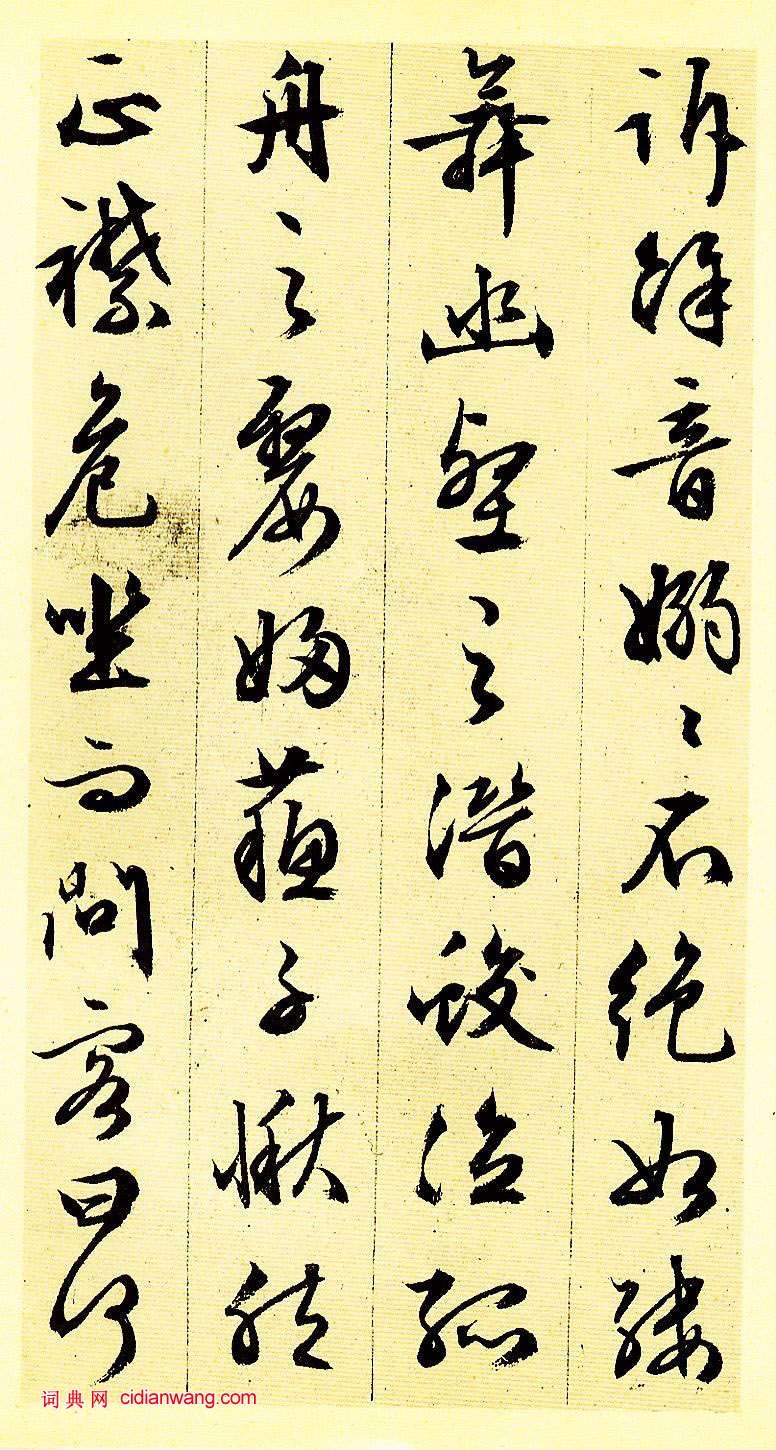 訴餘音嫋〻不絕如縷
舞幽壑之潛蛟泣孤
舟之嫠婦蘇子愀然
正襟危坐而問客曰何
词典网 cidianwang.com